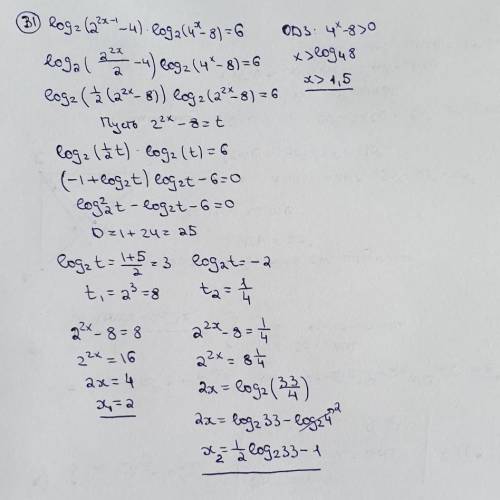 31) log₂(2²ˣ⁻¹-4)·log₂(4ˣ-8)=6
ОДЗ: 4ˣ-8>0
x>log₄8
x>1,5
log₂(2²ˣ/2-4)log₂(4ˣ-8)=6
log₂(1/2(2²ˣ-8))log₂(2²ˣ-8)=6
Пусть 2²ˣ-8=t
log₂(1/2t)·log₂(t)=6
(-1+log₂t)log₂t-6=0
log₂²t-log₂t-6=0
D=1+24=25
log₂t=(1+5)/2=3
t₁=2³=8
2²ˣ-8=8
2²ˣ=16
2x=4
x₁=2
log₂t=-2
t₂=1/4
2²ˣ-8=1/4
2²ˣ=8 1/4
2x=log₂(33/4)
2x=log₂33-log₂4 2
x₂=1/2log₂33-1